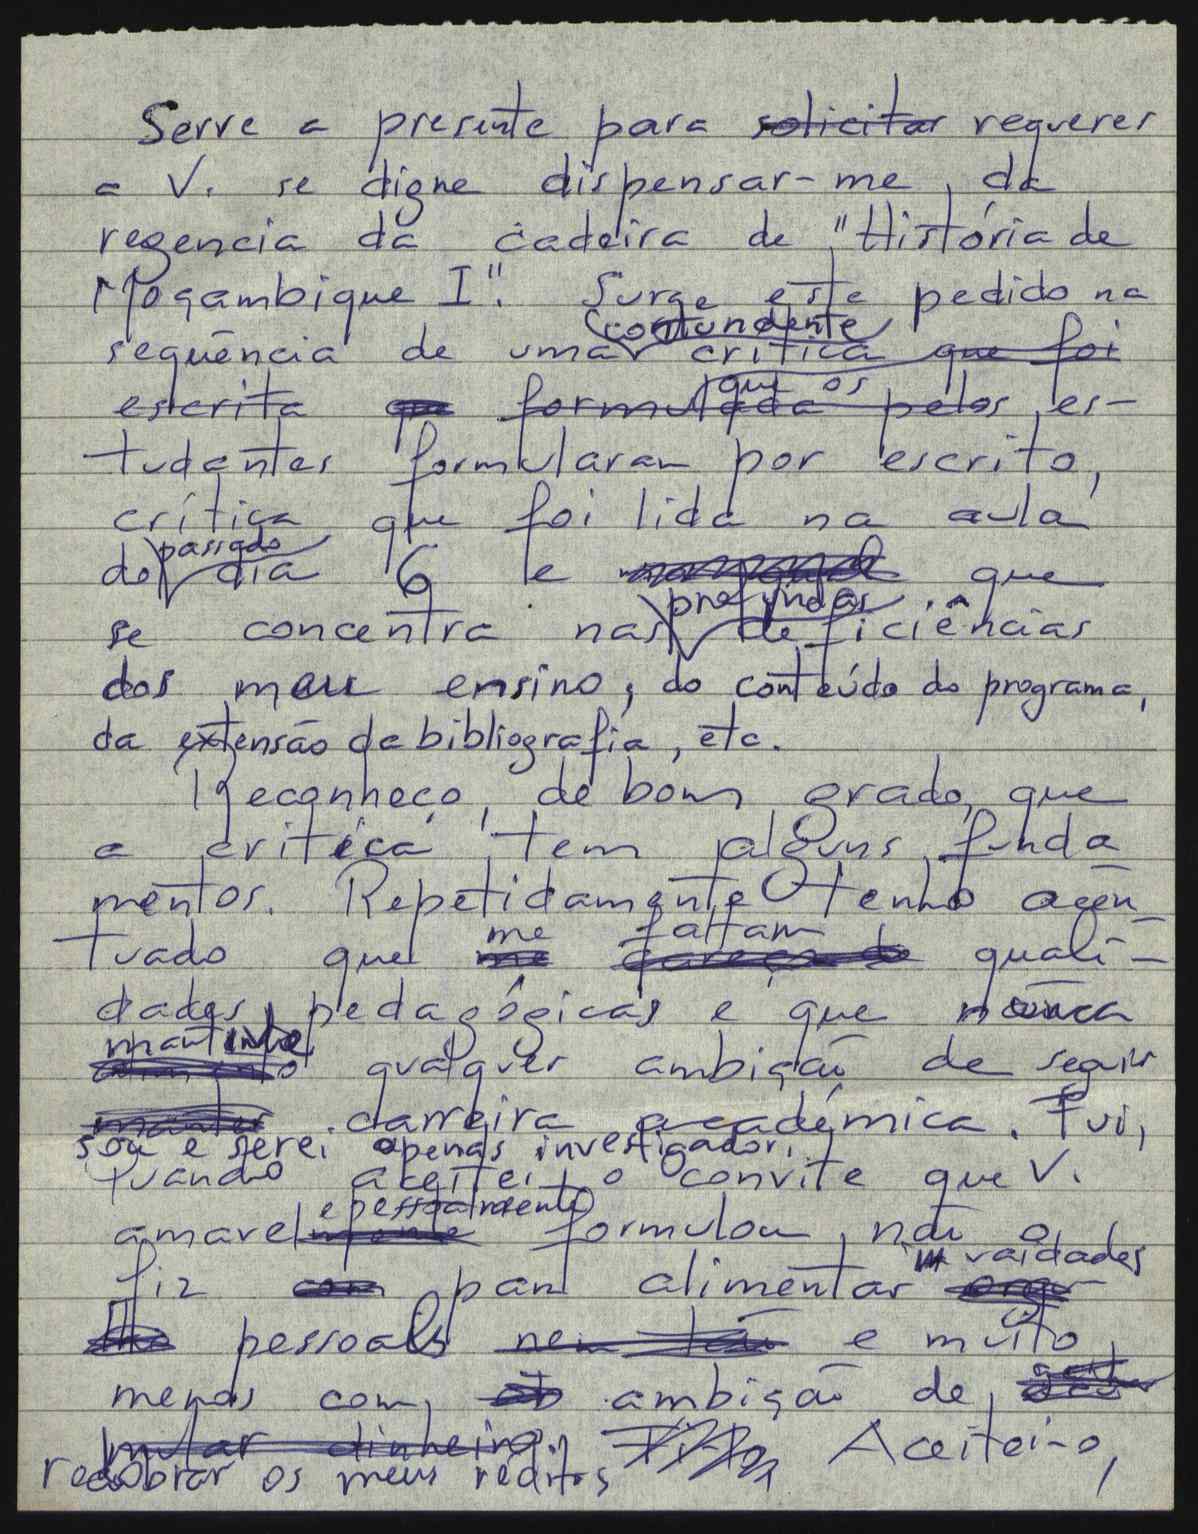 Serve a presente para solicitar requerer
a V. se digne dispensar-me da
regencia da cadeira de "História de
Moçambique I". Surge este pedido na
contundente
sequência de uma crítica que foi
que os
escrita formulada pelos es-
tudantes formularam por escrito,
crítica que foi lida na aula
passado
do dia 6 e que
profundas
se concentra nas deficiências
dos meu ensino, do conteúdo do programa,
da extensão da bibliografia, etc.
Reconheço, de bom grado, que
a crítica tem alguns funda
mentos. Repetidamente tenho acen-
me faltam
tuado que me quali-
dades pedagógicas e que nunca
mantive
qualquer ambição de seguir
manter carreira académica. Fui,
sou e serei apenas investigador.
Quando aceitei o convite que V.
e pessoalmente
amavelmente formulou, não o
vaidades
fiz com para alimentar
pessoais nem tão e muito
menos com ambição de
mular dinheiro. Aceitei-o,
redobrar os meus réditos